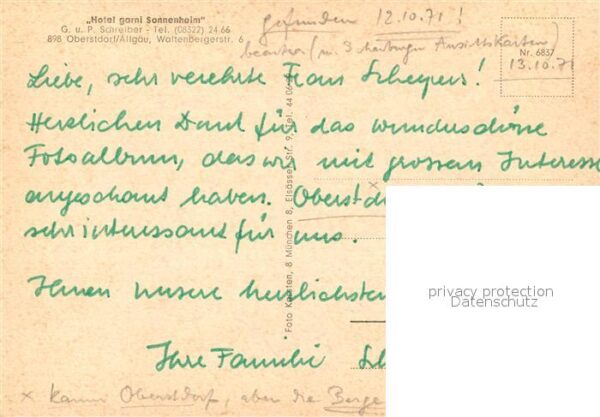 „Hotel garni Sonnenheim"
G. u. P. Schreiber - Tel. (08322) 24 66
898 Oberstdorf/Allgäu, Waltenbergerstr. 6
gefunden 12.10.71!
Ansichtskarten)
Nr. 6837
13.10.71
Liebe, sehr verehrte Frau Scheyers!
Herzlichen Dank für das wunderschöne
Fotoalbum, das wir mit grossem Interesse
angeschaut haben. Oberstd
sehr interessant für uns.
Ihnen unsere herzlichsten
Ihre Familie
Foto Kersten, 8 München 8, Elsässer Str. 9, Tel. 44 06
x kaum Oberstdorf, aber die Berge
privacy protection
Datenschutz